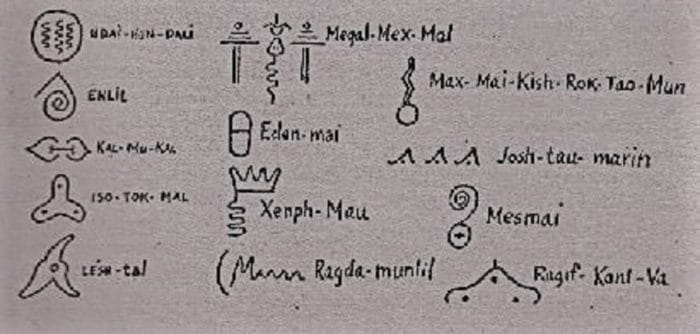 UDAI-KON-PALI
ENLIL
KAL-MU-KAL
ISO-TOK-MAL
LESH-tal
Megal-Mex-Mal
Eden-mai
Xenph-Mau
Ragda-muntil
Max-Mai-Kish-Rok-Tao-Mun
Josh-tau-marin
Mesmai
Ragif-Kant-Va